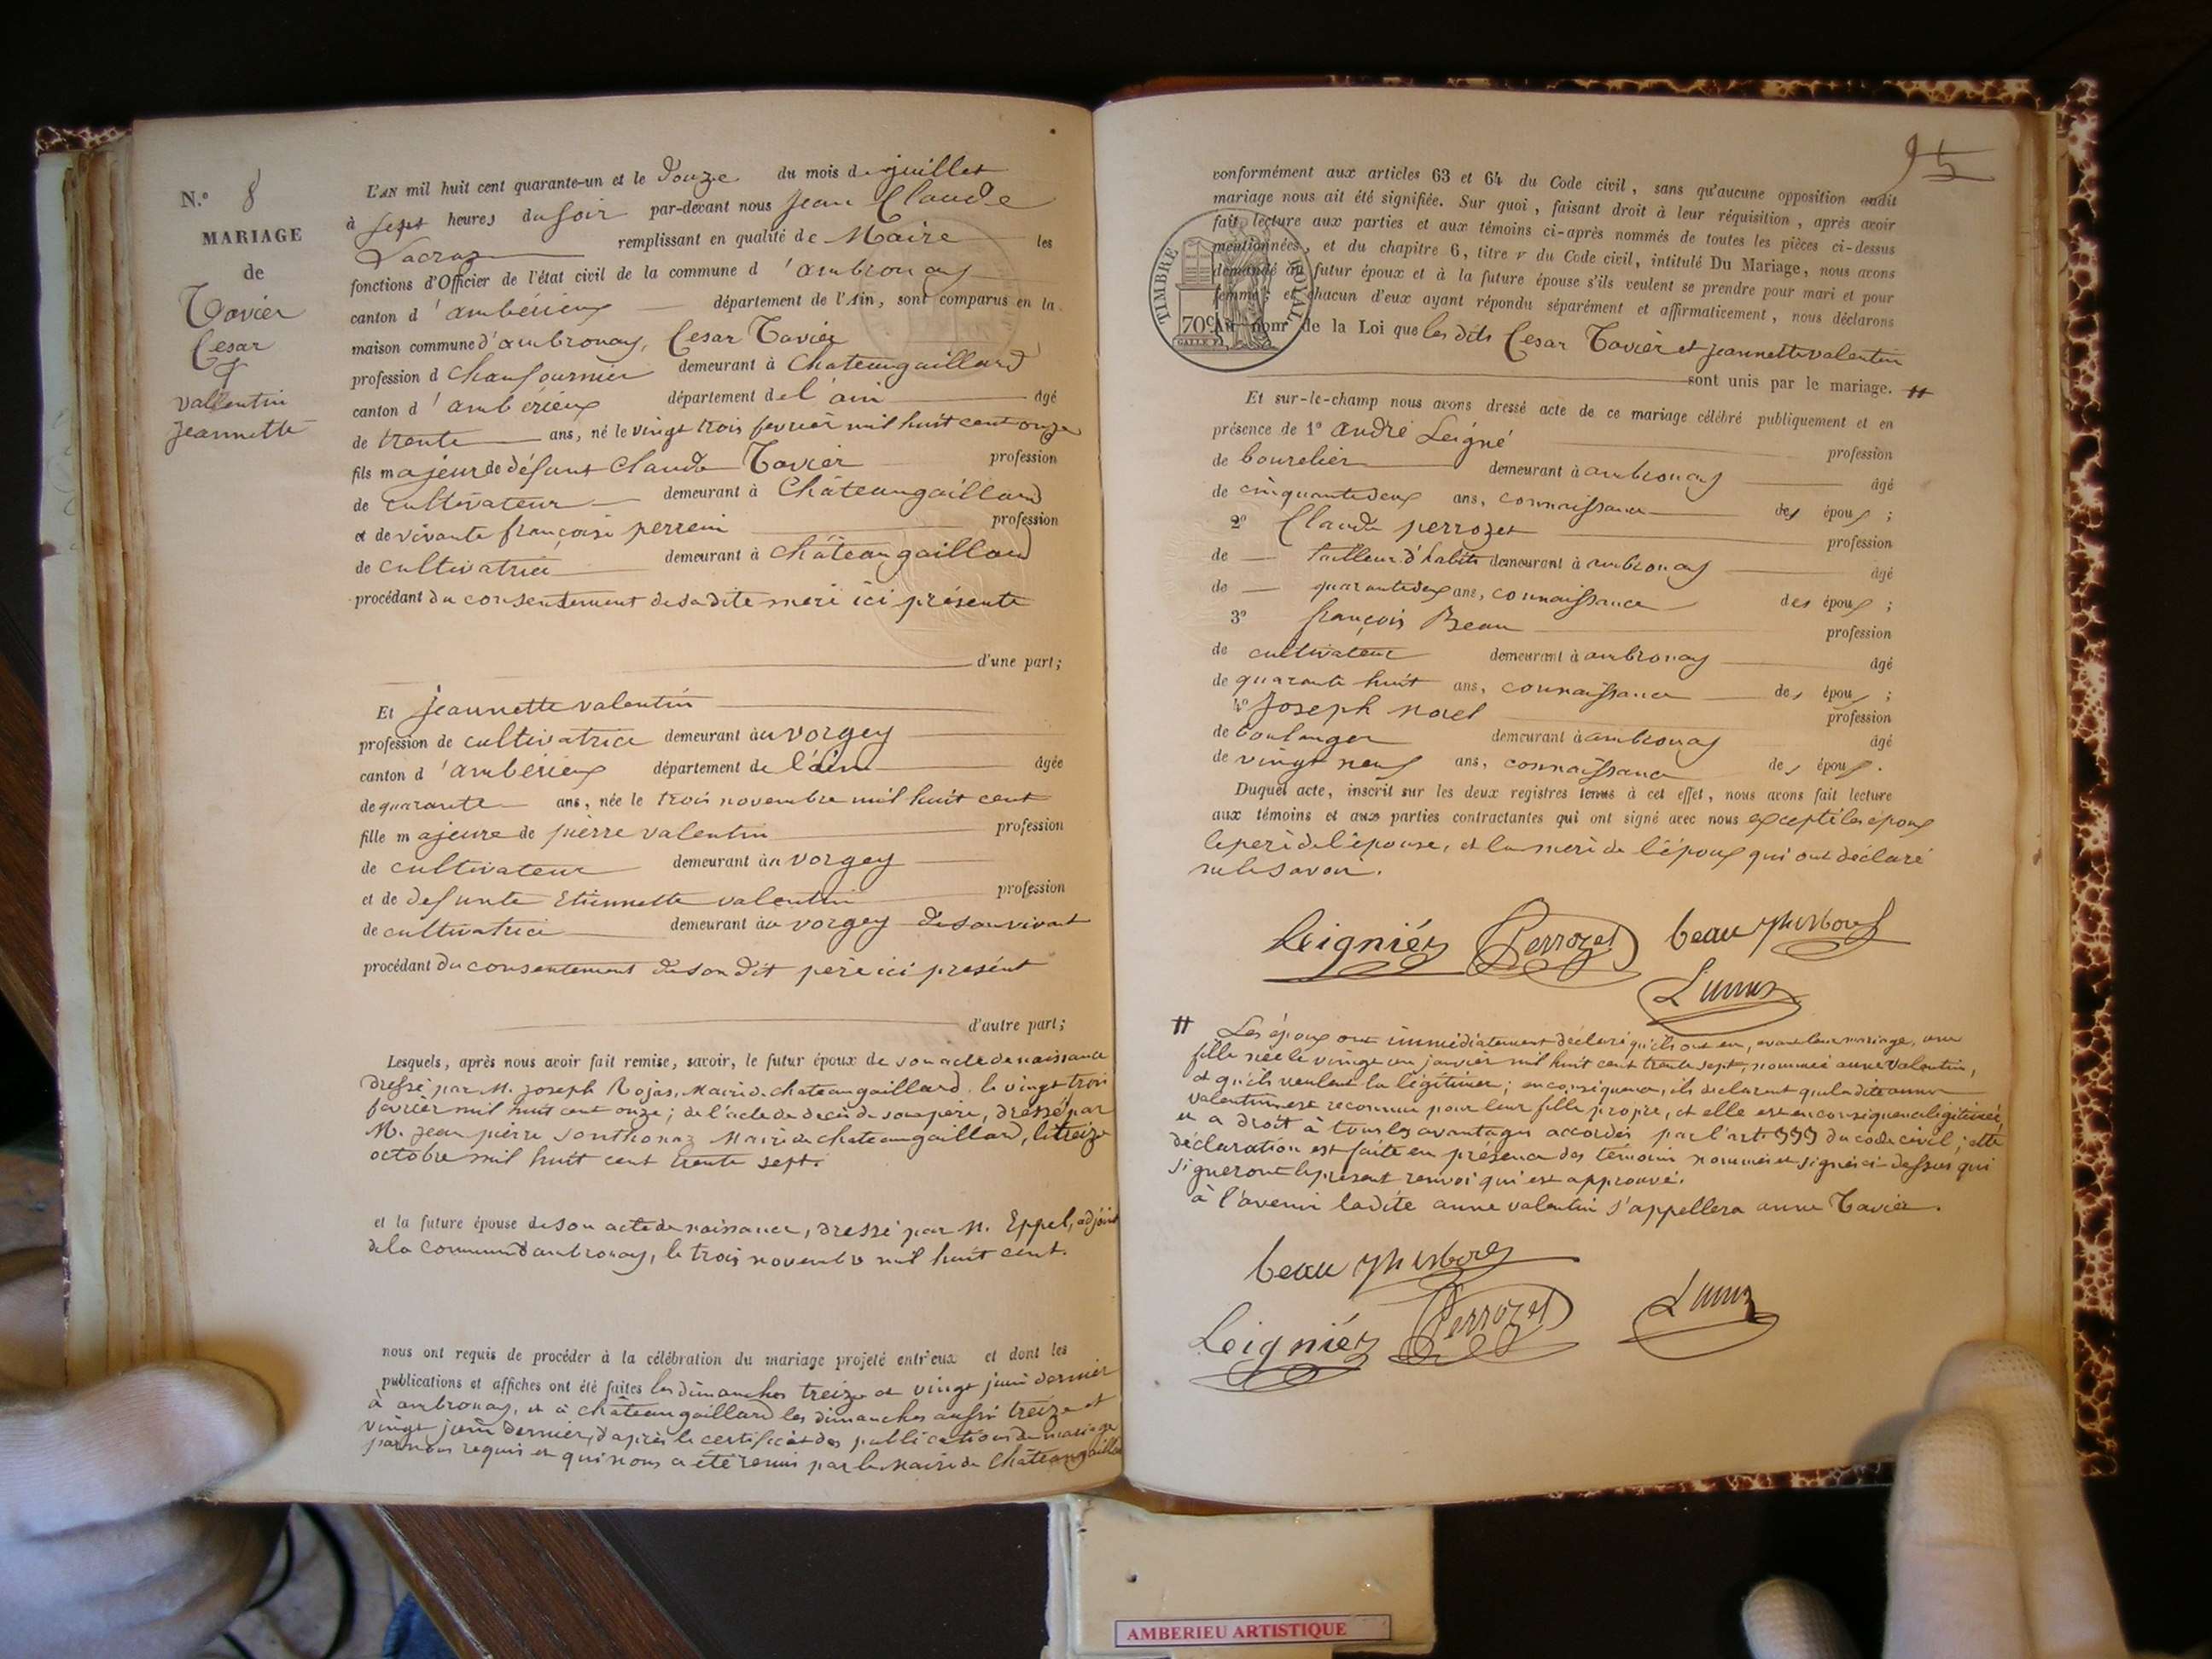 N.° 8
MARIAGE
de
Tavier
Cesar
&
vallentin
Jeannette
L'AN mil huit cent quarante-un et le Douze du mois de juillet
à sept heures du soir par-devant nous Jean Claude
Lacraz remplissant en qualité de Maire les
fonctions d'Officier de l'état civil de la commune d'ambronay
canton d'ambérieux département de l'Ain, sont comparus en la
maison commune d'ambronay, Cesar Tavier
profession d chaufournier demeurant à Chateaugaillard
canton d'ambérieux département de l'ain âgé
de trente ans, né le vingt trois fevrier mil huit cent onze
fils majeur de défunt Claude Tavier profession
de cultivateur demeurant à Châteaugaillard
et de vivante françoise perrein profession
de cultivatrice demeurant à châteaugaillard
procédant du consentement de sa dite mere ici présente
d'une part;
Et jeannette valentin
profession de cultivatrice demeurant au vorgey
canton d'ambérieux département de l'ain âgée
de quarante ans, née le trois novembre mil huit cent
fille majeure de pierre valentin profession
de cultivateur demeurant au vorgey
et de defunte Etiennette valentin profession
de cultivatrice demeurant au vorgey de son vivant
procédant du consentement de son dit père ici présent
d'autre part;
Lesquels, après nous avoir fait remise, savoir, le futur époux de son acte de naissance
dressé par M. Joseph Rojas, Maire de chateaugaillard, le vingt trois
fevrier mil huit cent onze; de l'acte de décès de son père, dressé par
M. jean pierre Sonthonaz Maire de chateaugaillard, le treize
octobre mil huit cent trente sept.
et la future épouse de son acte de naissance, dressé par M. Eppel, adjoint
de la commune d'ambronay, le trois novembre mil huit cent.
nous ont requis de procéder à la célébration du mariage projeté entr'eux et dont les
publications et affiches ont été faites les dimanches treize et vingt juin dernier
à ambronay, et à châteaugaillard les dimanches aussi treize et
vingt juin dernier, d'après le certificat des publications de mariage
par nous requis et qui nous a été remis par le Maire de Châteaugaillard
95
conformément aux articles 63 et 64 du Code civil, sans qu'aucune opposition audit
mariage nous ait été signifiée. Sur quoi, faisant droit à leur réquisition, après avoir
fait lecture aux parties et aux témoins ci-après nommés de toutes les pièces ci-dessus
mentionnées, et du chapitre 6, titre v du Code civil, intitulé Du Mariage, nous avons
demandé au futur époux et à la future épouse s'ils veulent se prendre pour mari et pour
femme; et chacun d'eux ayant répondu séparément et affirmativement, nous déclarons
Au nom de la Loi que les dits Cesar Tavier et jeannette valentin
TIMBRE ROYAL
70c
sont unis par le mariage. #
Et sur-le-champ nous avons dressé acte de ce mariage célébré publiquement et en
présence de 1° andré Leigné profession
de bourelier demeurant à ambronay âgé
de cinquante deux ans, connaissance des époux;
2° Claude perrozet profession
de tailleur d'habits demeurant à ambronay âgé
de quarante deux ans, connaissance des époux;
3° françois Beau profession
de cultivateur demeurant à ambronay âgé
de quarante huit ans, connaissance des époux;
4° Joseph morel profession
de boulanger demeurant à ambronay âgé
de vingt neuf ans, connaissance des époux.
Duquel acte, inscrit sur les deux registres tenus à cet effet, nous avons fait lecture
aux témoins et aux parties contractantes qui ont signé avec nous excepté les époux
le pere de l'épouse, et la mere de l'époux qui ont déclaré
ne le savoir.
Leigniér Perrozet beau
# Les époux ont immédiatement déclaré qu'ils ont eu, avant leur mariage, une
fille née le vingt un janvier mil huit cent trente sept, nommée anne Valentin,
et qu'ils veulent la légitimer; en conséquence, ils déclarent que la dite anne
valentin est reconnue pour leur fille propre, et elle est en conséquence légitimée,
et a droit à tous les avantages accordés par l'art. 333 du code civil; cette
déclaration est faite en présence des témoins nommés et signés ci-dessus qui
signeront le présent renvoi qui est approuvé.
à l'avenir ladite anne valentin s'appellera anne Tavier.
beau
Leigniér Perrozet
AMBERIEU ARTISTIQUE